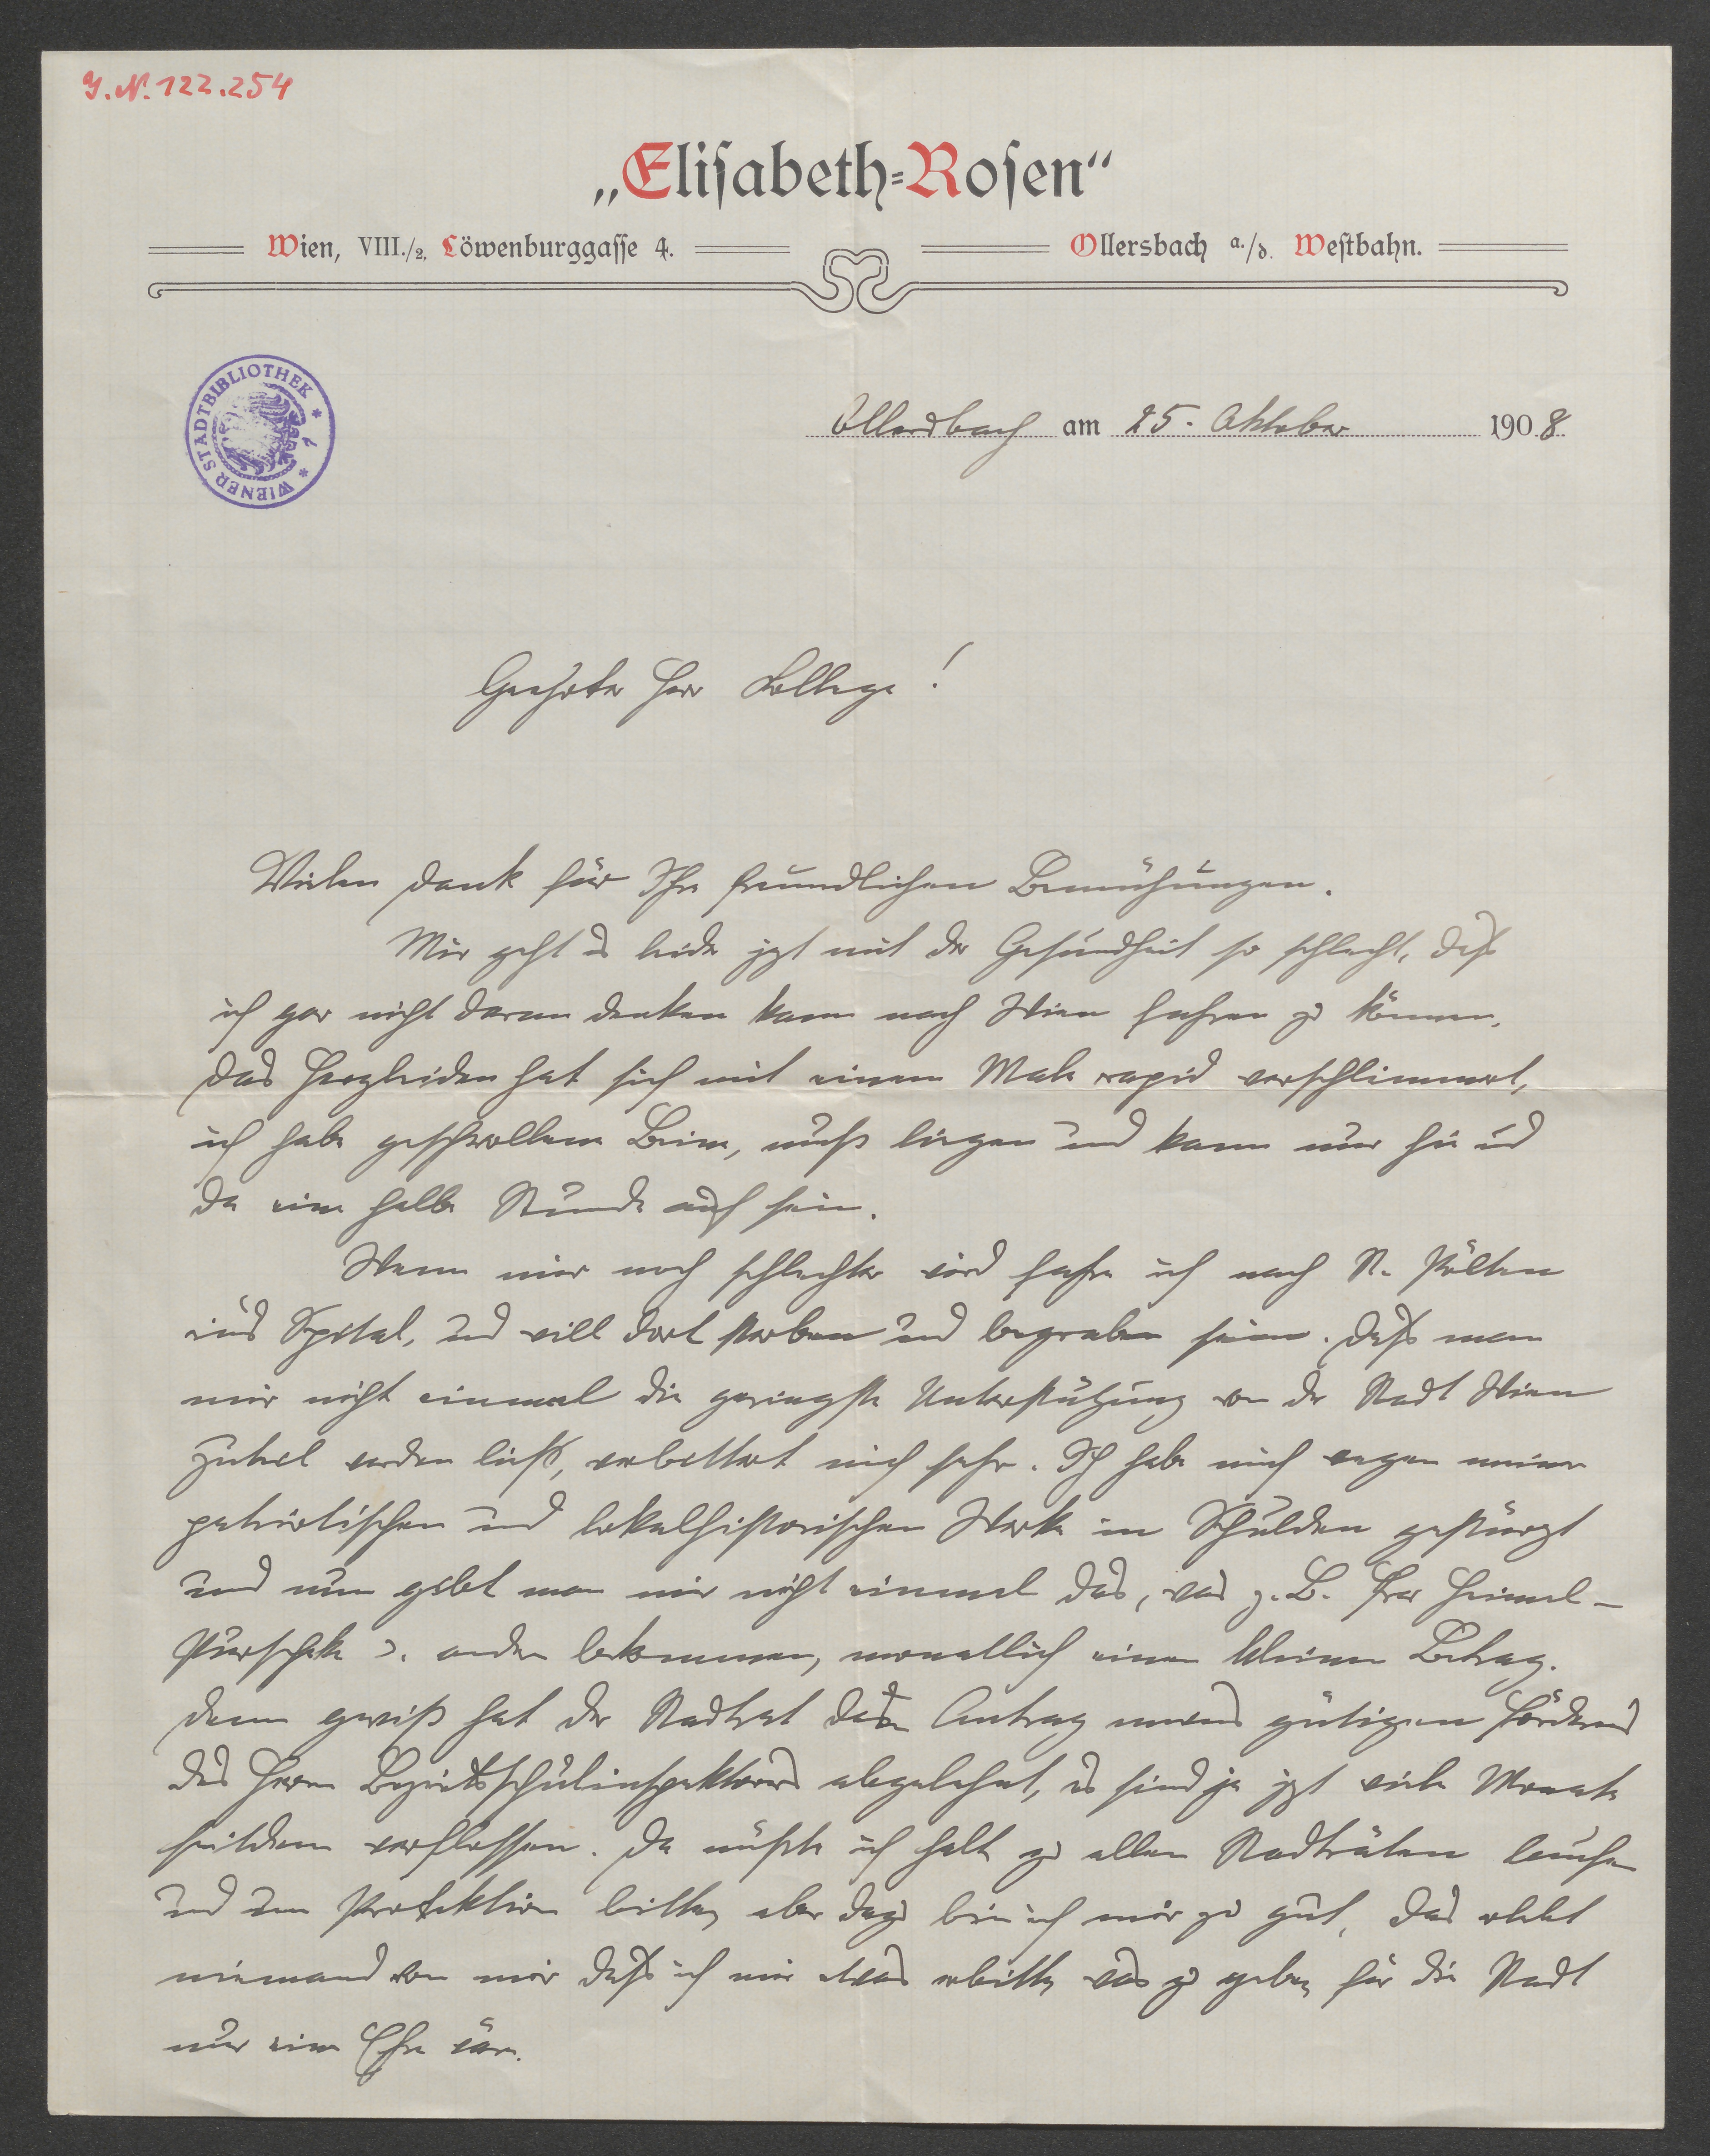 J. N. 122.254
„Elisabeth=Rosen“
Wien, VIII./2, Löwenburggasse 4.
Ollersbach a./d. Westbahn.
WIENER STADTBIBLIOTHEK
Ollersbach am 25. Oktober 1908
Geehrter Herr Kollege!
Vielen Dank für Ihre freundlichen Bemühungen.
Mir geht es leider jzt mit der Gesundheit so schlecht, daß
ich gar nicht daran denken kann nach Wien fahren zu können.
Das Herzleiden hat sich mit einem Male rapid verschlimmert,
ich habe geschwollene Beine, muß liegen und kann nur hie und
da eine halbe Stunde auf sein.
Wenn mir noch schlechter wird fahre ich nach St. Pölten
ins Spital, und will dort sterben und begraben sein. Daß man
mir nicht einmal die geringste Unterstützung von der Stadt Wien
zuteil werden ließ, verbittert mich sehr. Ich habe mich wegen meiner
patriotischen und lokalhistorischen Werke in Schulden gestürzt
und nun gibt man mir nicht einmal das, was z. B. Frau Heimel-
Purschke u. andere bekommen, monatlich einen kleinen Betrag.
Denn gewiß hat der Stadtrat den Antrag meines gütigen Förderers
des Herrn Bezirksschulinspektors abgelehnt, es sind ja jzt viele Monate
seitdem verflossen. Da müßte ich halt zu allen Stadträten laufen
und um Protektion bitten, aber dazu bin ich mir zu gut, das erlebt
niemand von mir daß ich mir etwas erbitte, was zu geben für die Stadt
nur eine Ehre wäre.